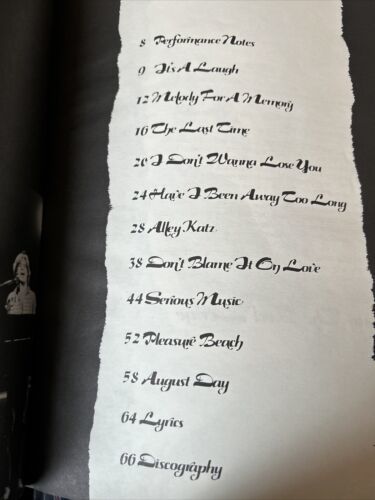 8 Performance Notes
9 It's A Laugh
12 Melody For A Memory
16 The Last Time
20 I Don't Wanna Lose You
24 Have I Been Away Too Long
28 Alley Katz
38 Don't Blame It On Love
44 Serious Music
52 Pleasure Beach
58 August Day
64 Lyrics
66 Discography